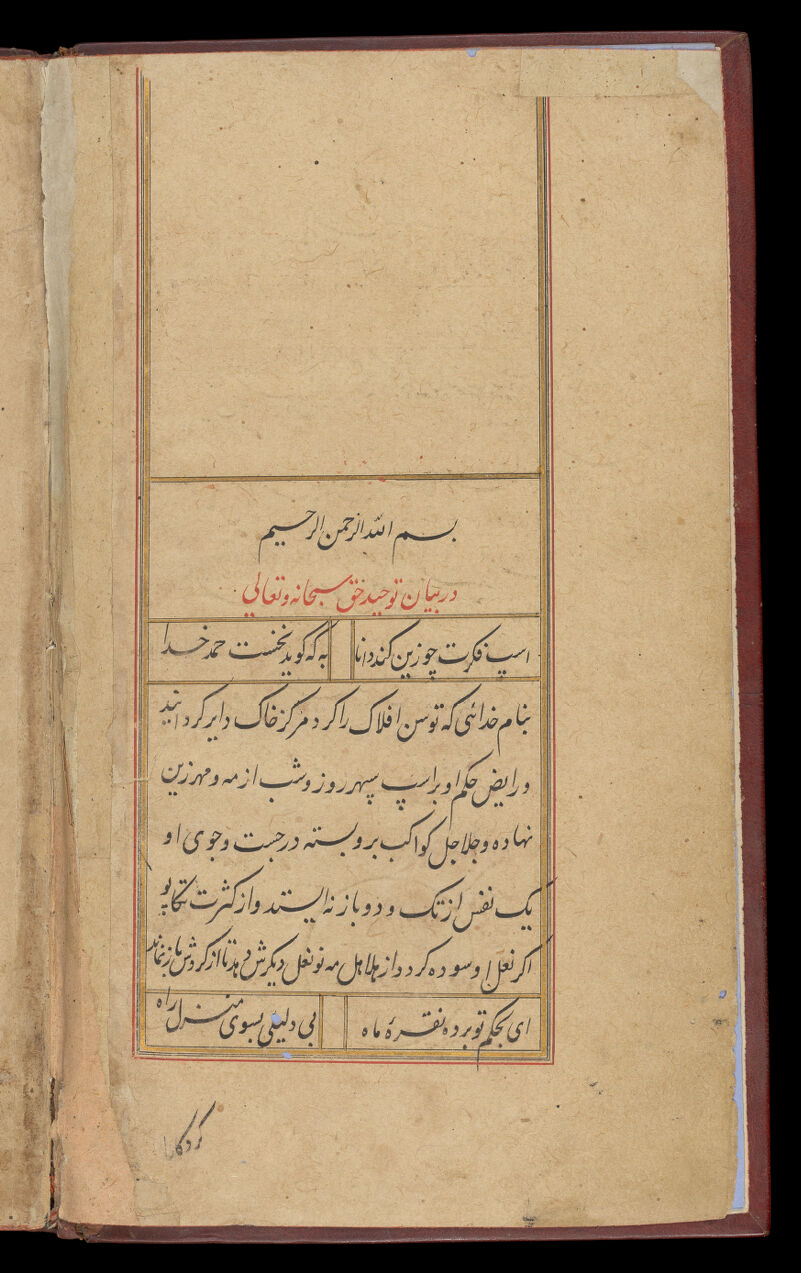 بسم الله الرحمن الرحیم
در بیان توحید حق سبحانه و تعالی
اسپ فکرت چو زین کند دانا به که کوید نخست حمد خدا
بنام خدائی که توسن افلاک را کرد مرکز خاک دایر کردانید
و رایض حکم او بر اسپ سپهر روز و شب از مه و مهر زین
نهاده و جلاجل کواکب برو بسته در جست و جوی او
یک نفس از تک و دو باز نه ایستد و از کثرت تکاپو
اکر نعل او سوده کردد از هلال مه نو نعل دیکرش دهد تا از کردش باز نماند
ای بحکم تو برده نقرهٔ ماه بی دلیلی بسوی منزل راه